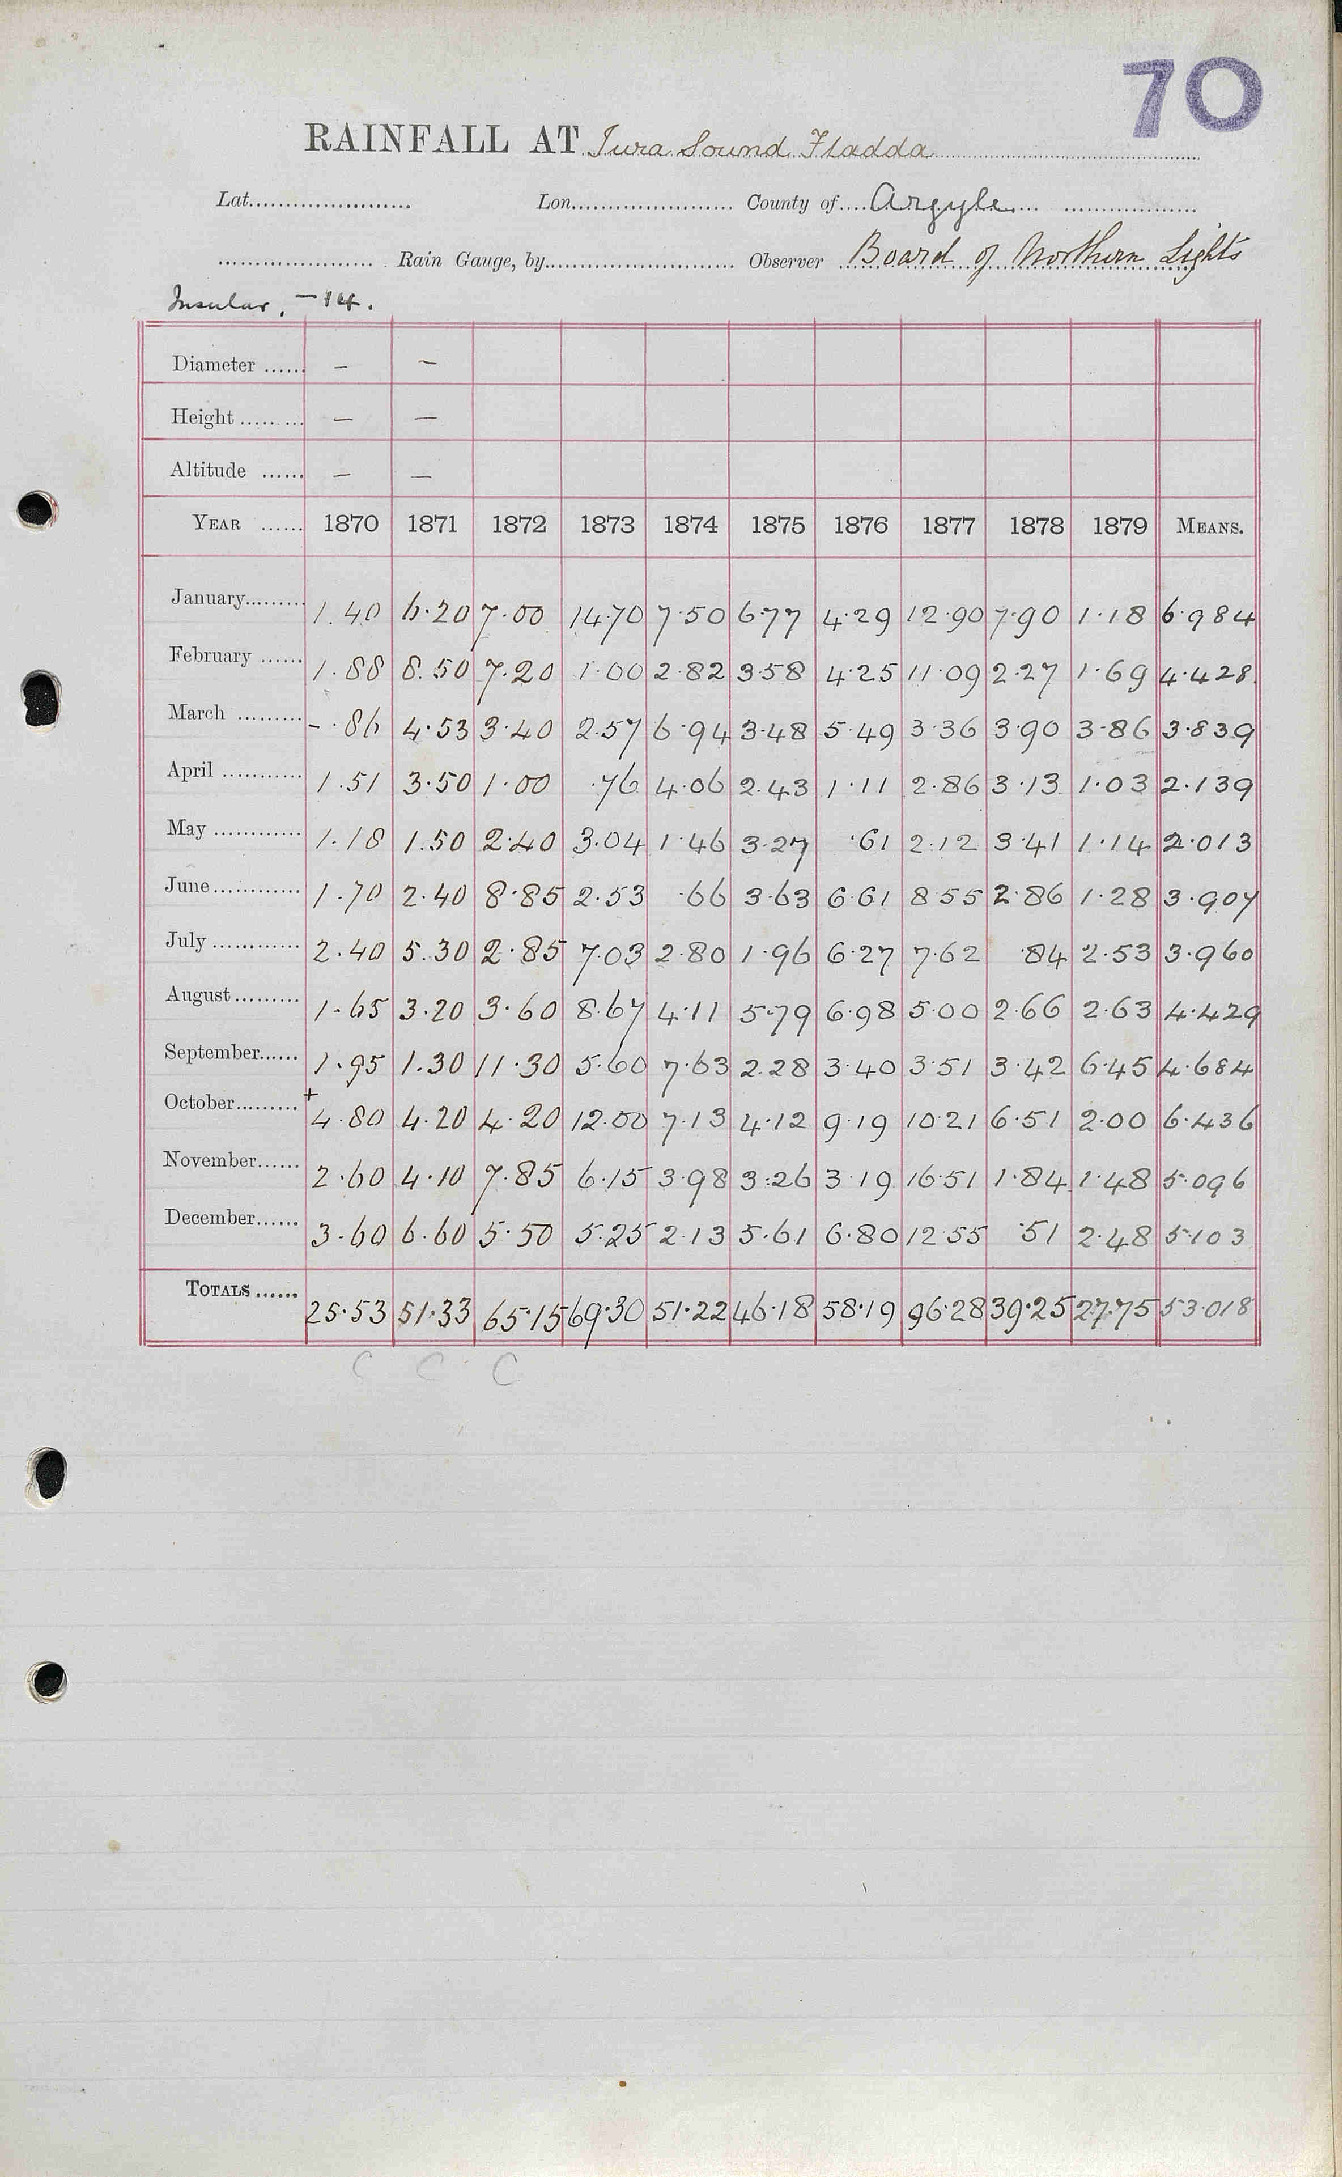 70
RAINFALL AT Jura Sound Fladda
Lat. Lon. County of Argyle
Rain Gauge, by Observer Board of Northern Lights
Insular, - 14.
Diameter — —
Height — —
Altitude — —
YEAR 1870 1871 1872 1873 1874 1875 1876 1877 1878 1879 MEANS.
January 1.40 6.20 7.00 14.70 7.50 6.77 4.29 12.90 7.90 1.18 6.984
February 1.88 8.50 7.20 1.00 2.82 3.58 4.25 11.09 2.27 1.69 4.428
March -.86 4.53 3.40 2.57 6.94 3.48 5.49 3.36 3.90 3.86 3.839
April 1.51 3.50 1.00 .76 4.06 2.43 1.11 2.86 3.13 1.03 2.139
May 1.18 1.50 2.40 3.04 1.46 3.27 .61 2.12 3.41 1.14 2.013
June 1.70 2.40 8.85 2.53 .66 3.63 6.61 8.55 2.86 1.28 3.907
July 2.40 5.30 2.85 7.03 2.80 1.96 6.27 7.62 .84 2.53 3.960
August 1.65 3.20 3.60 8.67 4.11 5.79 6.98 5.00 2.66 2.63 4.429
September 1.95 1.30 11.30 5.60 7.63 2.28 3.40 3.51 3.42 6.45 4.684
October + 4.80 4.20 4.20 12.00 7.13 4.12 9.19 10.21 6.51 2.00 6.436
November 2.60 4.10 7.85 6.15 3.98 3.26 3.19 16.51 1.84 1.48 5.096
December 3.60 6.60 5.50 5.25 2.13 5.61 6.80 12.55 .51 2.48 5.103
TOTALS 25.53 51.33 65.15 69.30 51.22 46.18 58.19 96.28 39.25 27.75 53.018
C C C